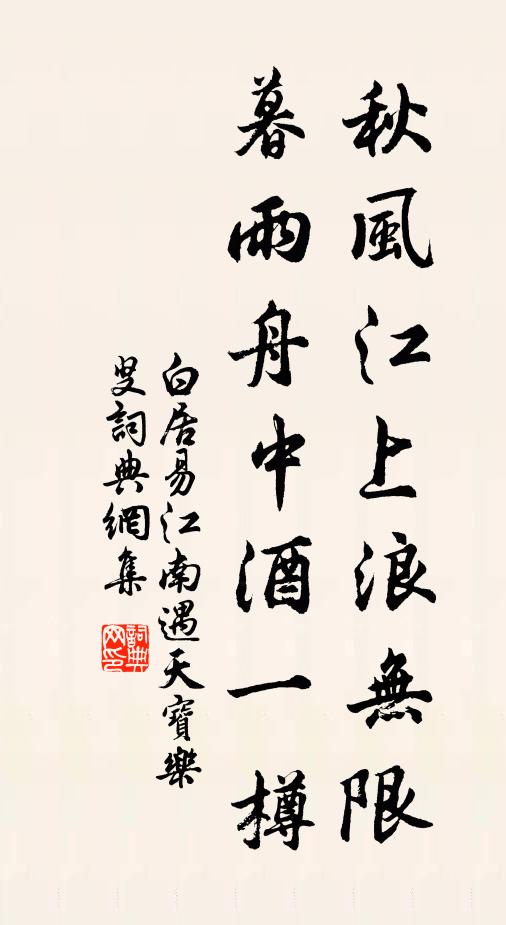 秋風江上浪無限
暮雨舟中酒一樽
白居易江南遇天寶樂
叟詞典網集
詞典
网印